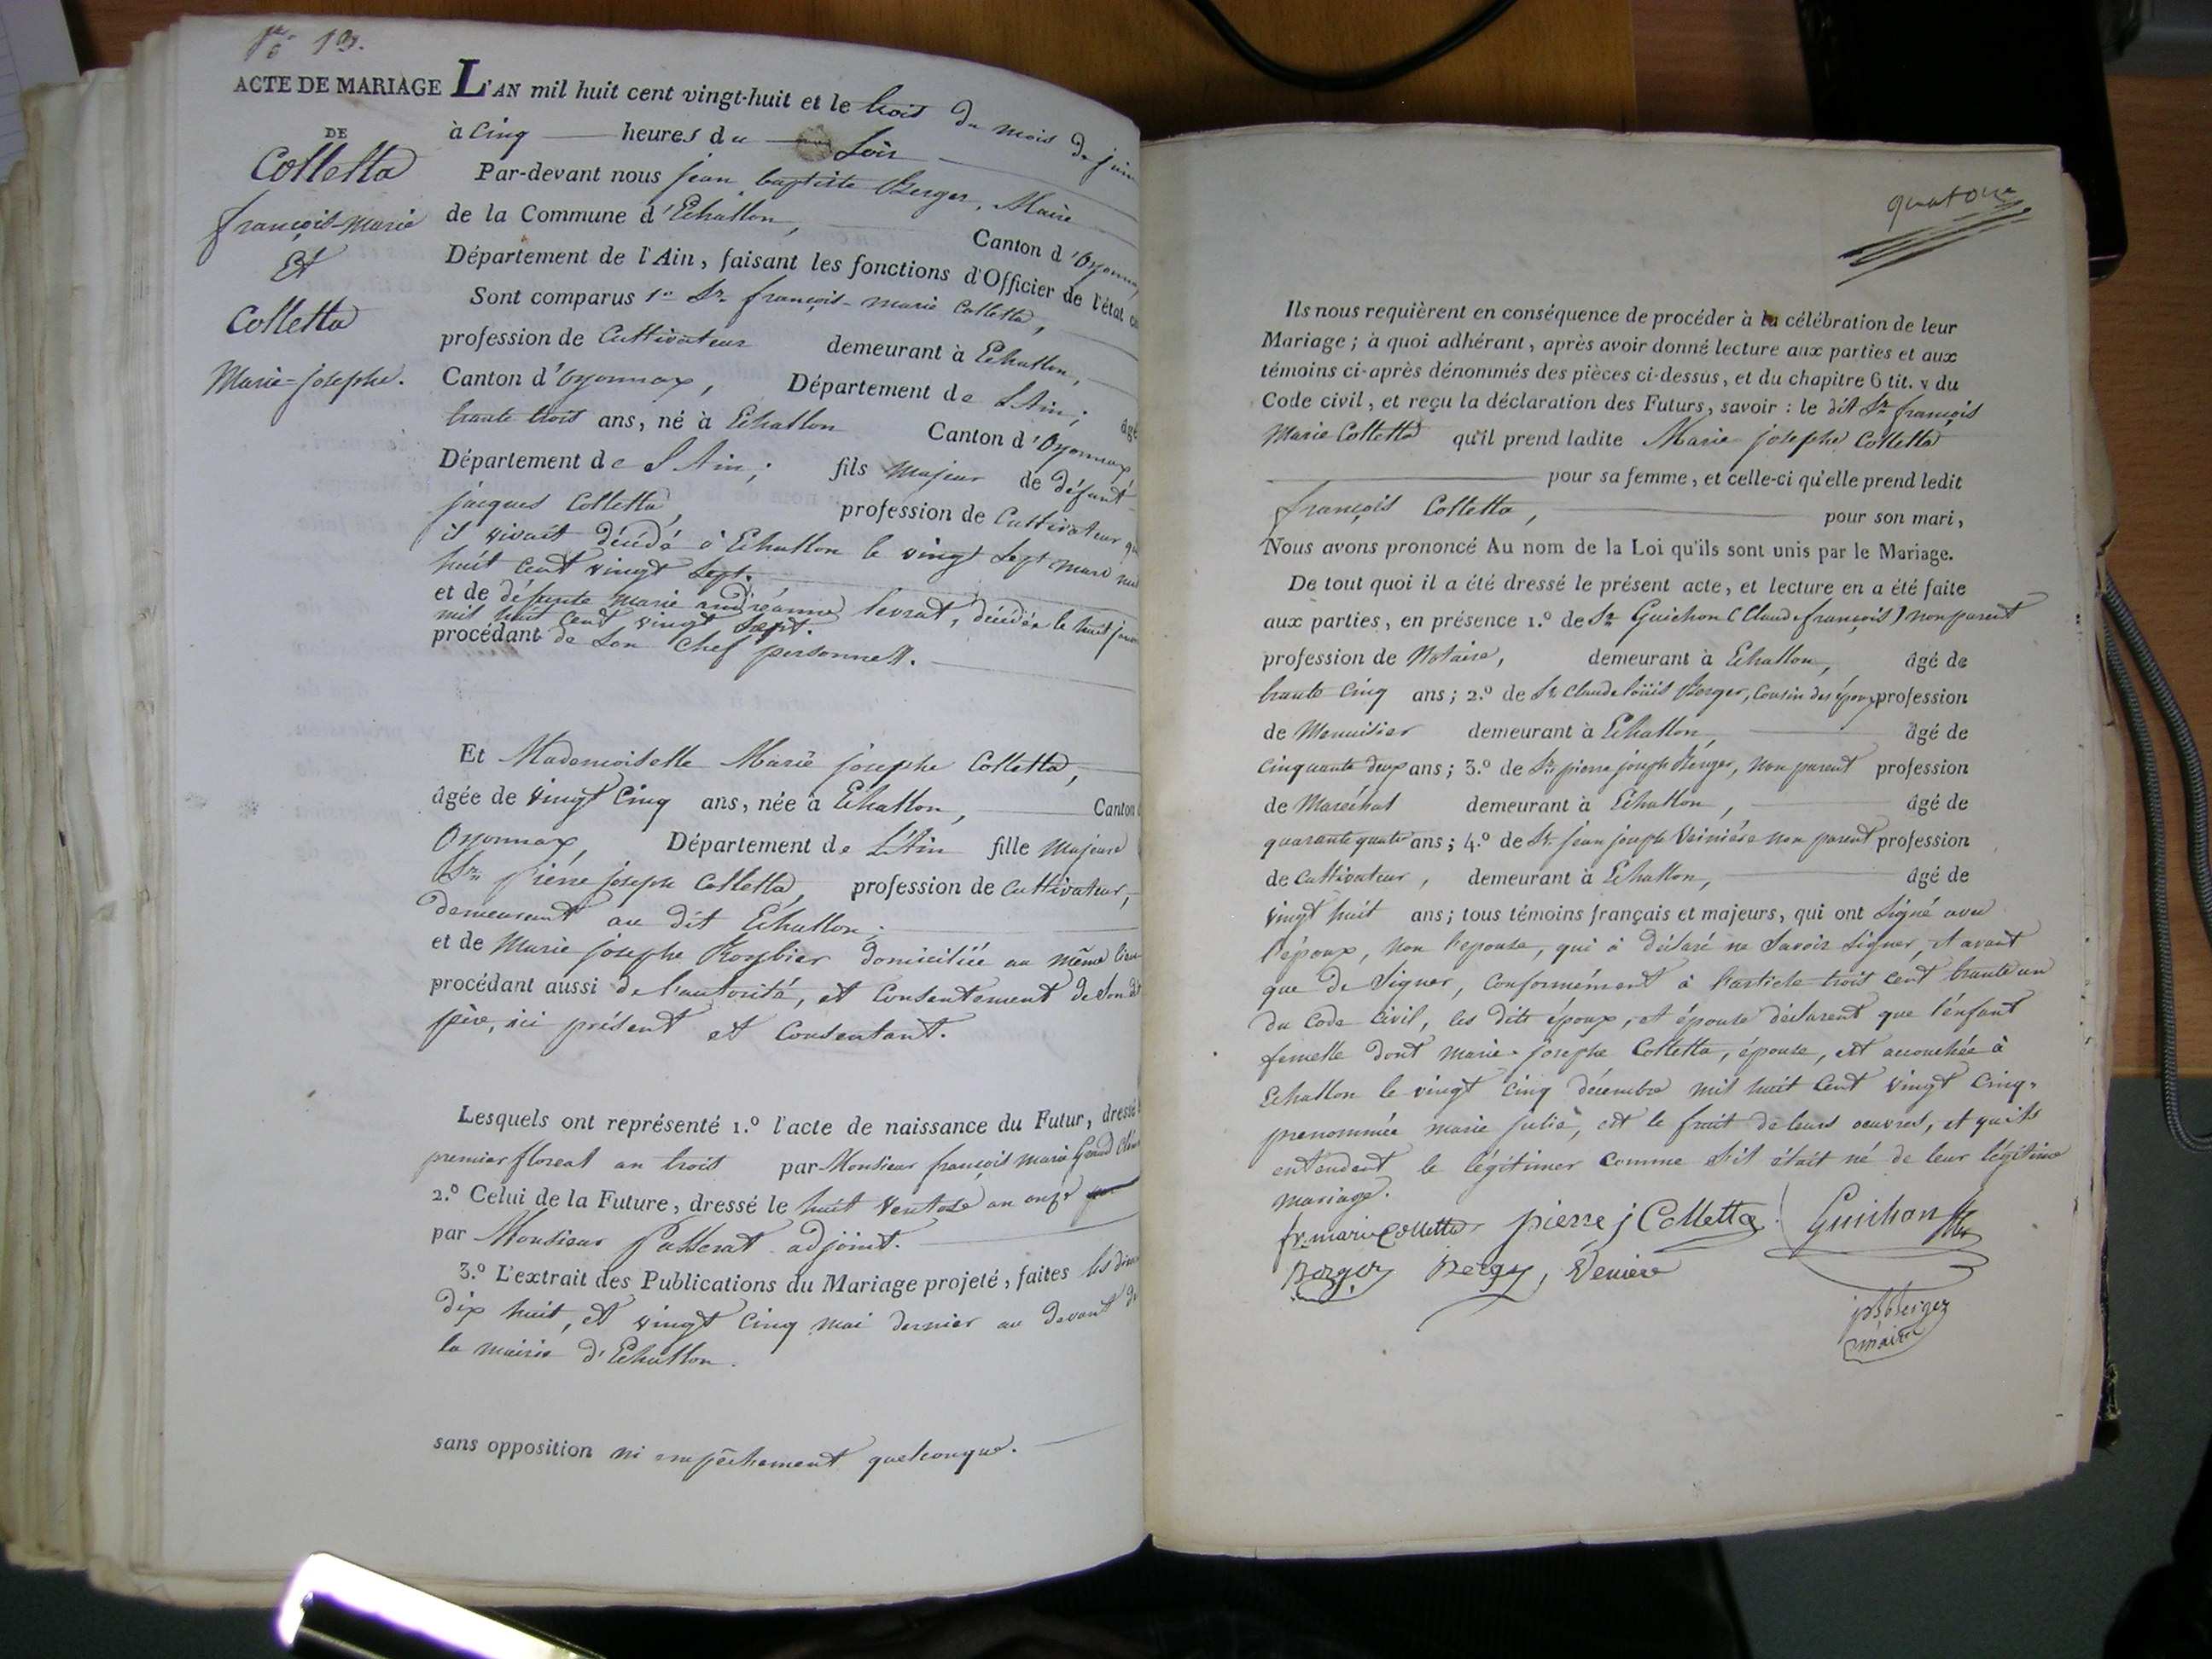 No 13.
ACTE DE MARIAGE
DE
Colletta
françois-Marie
Et
Colletta
Marie-josephe.
L'AN mil huit cent vingt-huit et le trois du mois de juin
à Cinq heures du Soir
Par-devant nous jean baptiste Berger, Maire
de la Commune d'Echallon, Canton d'Oyonnax
Département de l'Ain, faisant les fonctions d'Officier de l'état
Sont comparus 1° Sr. françois-marie Colletta,
profession de Cultivateur demeurant à Echallon,
Canton d'Oyonnax, Département de L'Ain; âgé
trente trois ans, né à Echallon Canton d'Oyonnax,
Département de L'Ain; fils Majeur de défunt
jacques Colletta, profession de Cultivateur
il vivait décédé à Echallon le vingt Sept mars mil
huit Cent vingt Sept.
et de défunte Marie andréanne levrat, décédée le huit
mil huit Cent vingt Sept.
procédant de Son Chef personnell.
Et Mademoiselle Marie josephe Colletta,
âgée de vingt Cinq ans, née à Echallon, Canton
Oyonnax, Département de L'Ain fille Majeure
Sr. pierre joseph Colletta, profession de Cultivateur,
demeurant au dit Echallon.
et de Marie josephe domiciliée au même lieu
procédant aussi de l'autorité, et Consentement de Son dit
père, ici présent et Consentant.
Lesquels ont représenté 1.° l'acte de naissance du Futur, dressé
premier floreal an trois par Monsieur françois marie
2.° Celui de la Future, dressé le huit Ventose an onze
par Monsieur Passerat adjoint.
3.° L'extrait des Publications du Mariage projeté, faites les
dix huit, et vingt Cinq mai dernier au devant de
la mairie d'Echallon.
sans opposition ni empêchement quelconque.
quatorze
Ils nous requièrent en conséquence de procéder à la célébration de leur
Mariage; à quoi adhérant, après avoir donné lecture aux parties et aux
témoins ci-après dénommés des pièces ci-dessus, et du chapitre 6 tit. v du
Code civil, et reçu la déclaration des Futurs, savoir : le dit Sr. françois
Marie Colletta qu'il prend ladite Marie josephe Colletta
pour sa femme, et celle-ci qu'elle prend ledit
françois Colletta, pour son mari,
Nous avons prononcé Au nom de la Loi qu'ils sont unis par le Mariage.
De tout quoi il a été dressé le présent acte, et lecture en a été faite
aux parties, en présence 1.° de Sr. Guichon (Claude françois) non parent
profession de Notaire, demeurant à Echallon, âgé de
trente Cinq ans; 2.° de Sr. Claude loüis Berger, Cousin des époux profession
de Menuisier demeurant à Echallon, âgé de
Cinquante deux ans; 3.° de Sr. pierre joseph Berger, non parent profession
de Maréchal demeurant à Echallon, âgé de
quarante quatre ans; 4.° de Sr. jean joseph Veinière non parent profession
de Cultivateur, demeurant à Echallon, âgé de
vingt huit ans; tous témoins français et majeurs, qui ont Signé avec
l'époux, non l'epouse, qui à déclaré ne Savoir Signer, et avant
que de Signer, Conformément à l'article trois Cent trente un
du Code Civil, les dits époux, et épouse déclarent que l'énfant
femelle dont marie-josephe Colletta, épouse, est accouchée à
Echallon le vingt Cinq décembre mil huit Cent vingt Cinq,
prenommée marie julie, est le fruit de leurs oeuvres, et quils
entendent le légitimer Comme S'il était né de leur légitime
mariage.
fr. marie Colletta pierre j Colletta Guichon
Berger Berger, Veniere
jb berger
maire